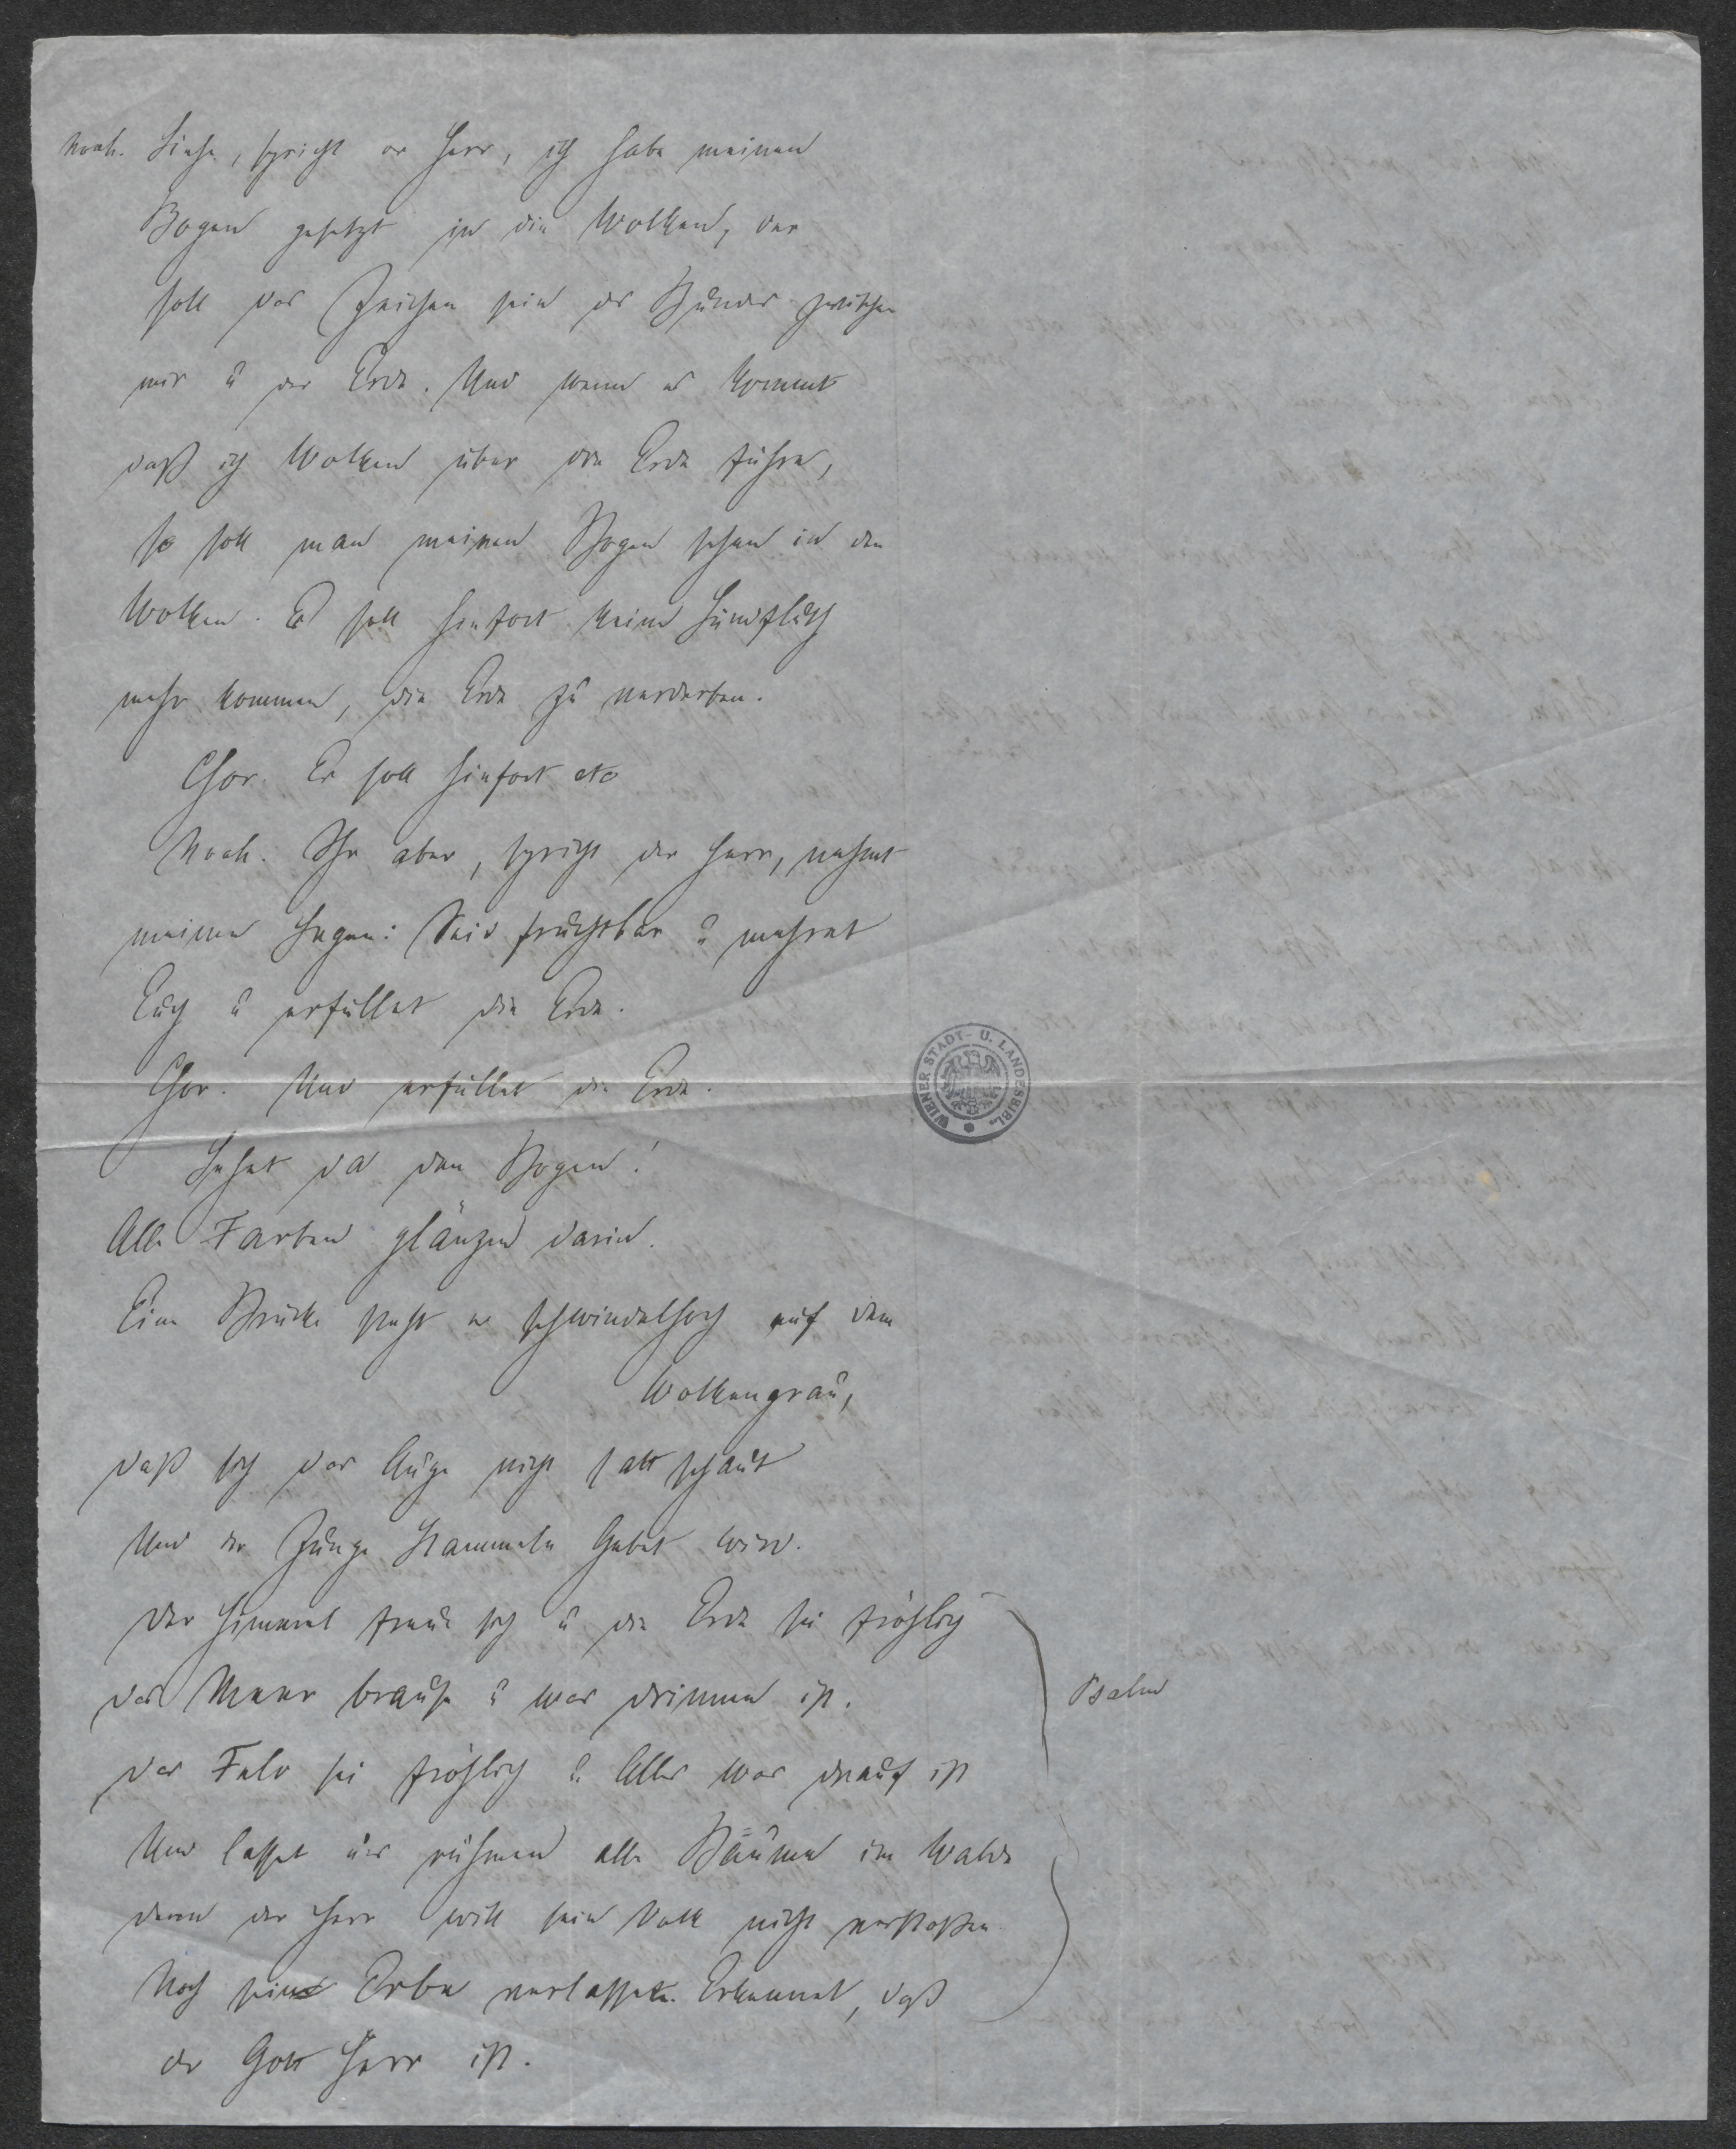 Noah. Siehe, spricht der Herr, ich habe meinen
Bogen gesetzt in die Wolken, der
soll das Zeichen sein des Bundes zwischen
mir u der Erde. Und wenn es kommt
daß ich Wolken über die Erde führe,
so soll man meinen Bogen sehen in den
Wolken. Es soll hinfort keine Sündfluth
mehr kommen, die Erde zu verderben.
Chor. Es soll hinfort etc
Noah. Ihr aber, spricht der Herr, nehmt
meinen Segen: Seid fruchtbar u mehret
Euch u erfüllet die Erde.
Chor. Und erfüllet die Erde.
Sehet da den Bogen!
Alle Farben glänzen darin.
Eine Brücke steht er schwindelhoch auf dem
Wolkengrau,
daß sich das Auge nicht satt schaut
Und der Zunge Stammeln Gebet wird.
Der Himmel freue sich u die Erde sei fröhlich
das Meer brause u was drinnen ist.
Das Feld sei fröhlich u Alles was drauf ist
Und lasset uns rühmen alle Bäume im Walde
denn der Herr will sein Volk nicht verstoßen
Psalm
Noch sein Erbe verlassen. Erkennet, daß
der Gott Herr ist.
WIENER STADT- U. LANDESBIBL.